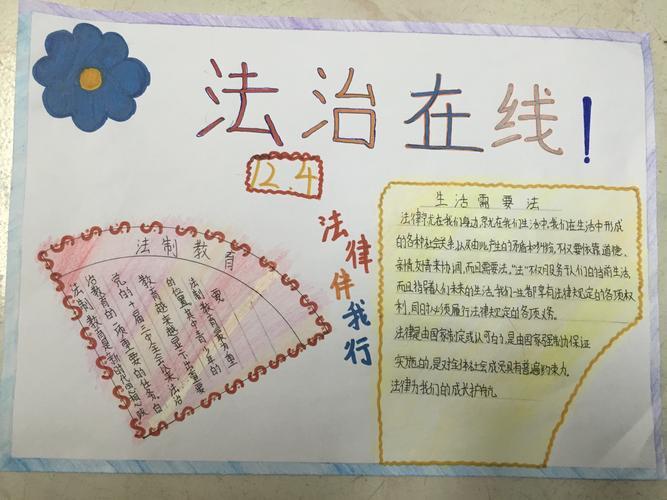 法治在线!
12.4
法律伴我行
法制教育
法制教育是新时代思想政
治教育的一项重要的任务。自
党的十届三中全会以来法治
教育越来越显示出重要
的位置其中青少年的
法制教育更为重
要
生活需要法
法律就在我们身边,就在我们生活中,我们在生活中形成
的各种社会关系,以及由此产生的矛盾和纠纷,不仅要依靠道德、
亲情、友情来协调,而且需要法。"法"不仅服务于人们的当前生活,
而且指导人们未来的生活。我们一生都享有法律规定的各项权
利,同时必须履行法律规定的各项义务。
法律是由国家制定或认可的,是由国家强制力保证
实施的,是对全体社会成员具有普遍约束力
法律为我们的成长护航